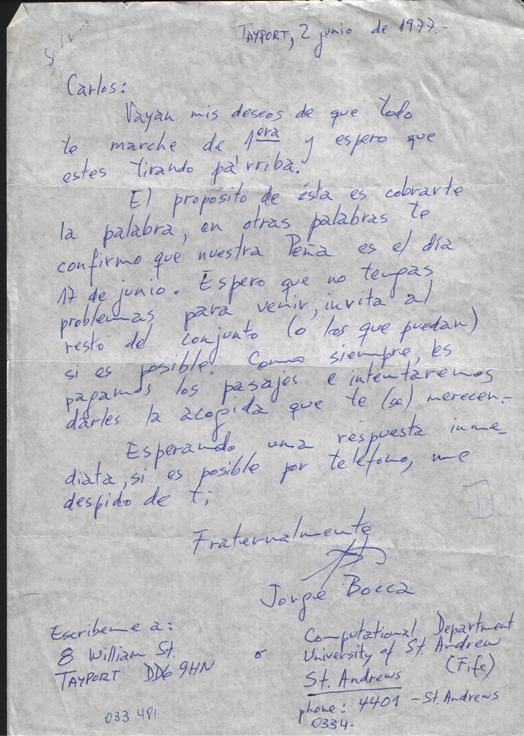 TAYPORT, 2 junio de 1977.-
Carlos:
Vayan mis deseos de que todo
te marche de 1era y espero que
estes tirando pa'rriba.
El proposito de ésta es cobrarte
la palabra, en otras palabras te
confirmo que nuestra Peña es el día
17 de junio. Espero que no tengas
problemas para venir, invita al
resto del conjunto (o los que puedan)
si es posible. Como siempre, les
pagamos los pasajes e intentaremos
darles la acogida que te (se) merecen.-
Esperando una respuesta inme-
diata, si es posible por teléfono, me
despido de ti
Fraternalmente
Jorge Bocca
Escribeme a:
8 William St.
TAYPORT DD6 9HN
o
Computational Department
University of St. Andrew
St. Andrews (Fife)
phone: 4401 - St. Andrews
0334-
033 481